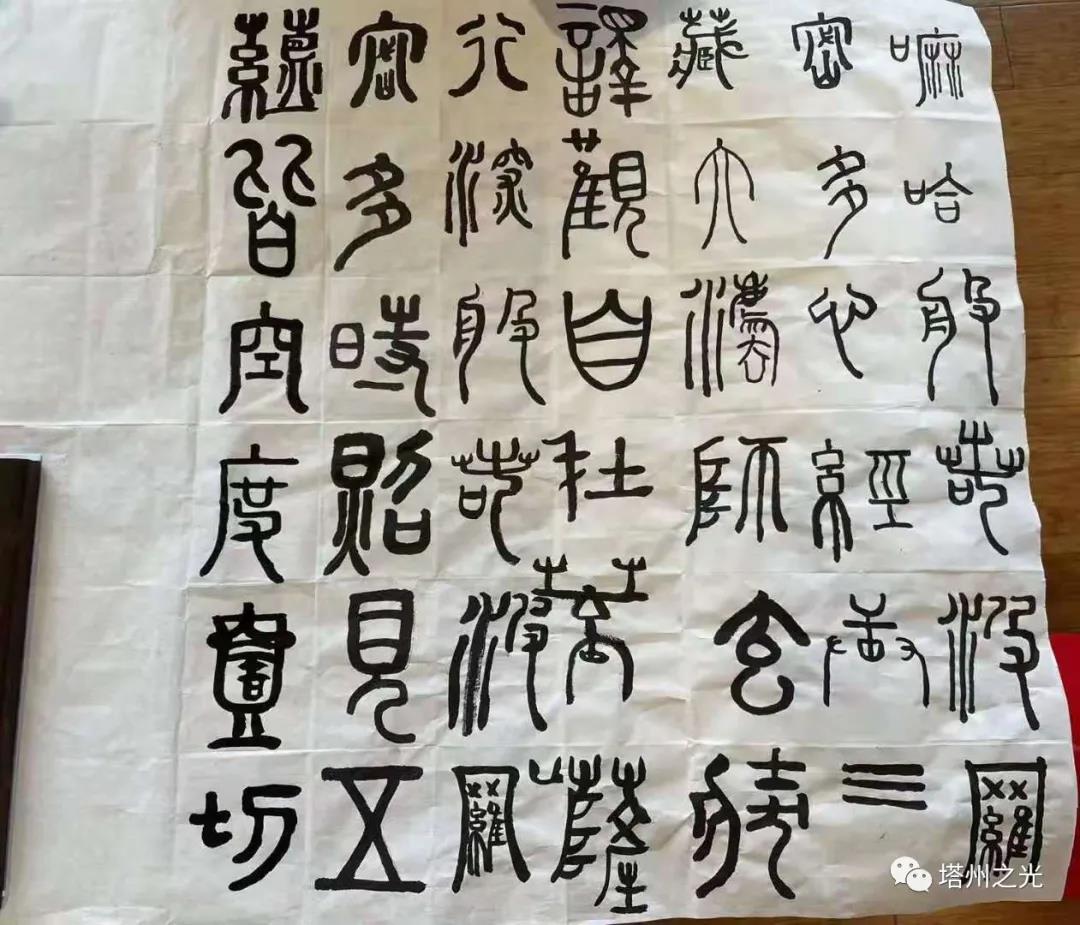 嘛哈般若波羅
密多心經唐三
藏大灋師玄奘
譯觀自在菩薩
行深般若波羅
密多時照見五
蘊皆空度壹切
塔州之光